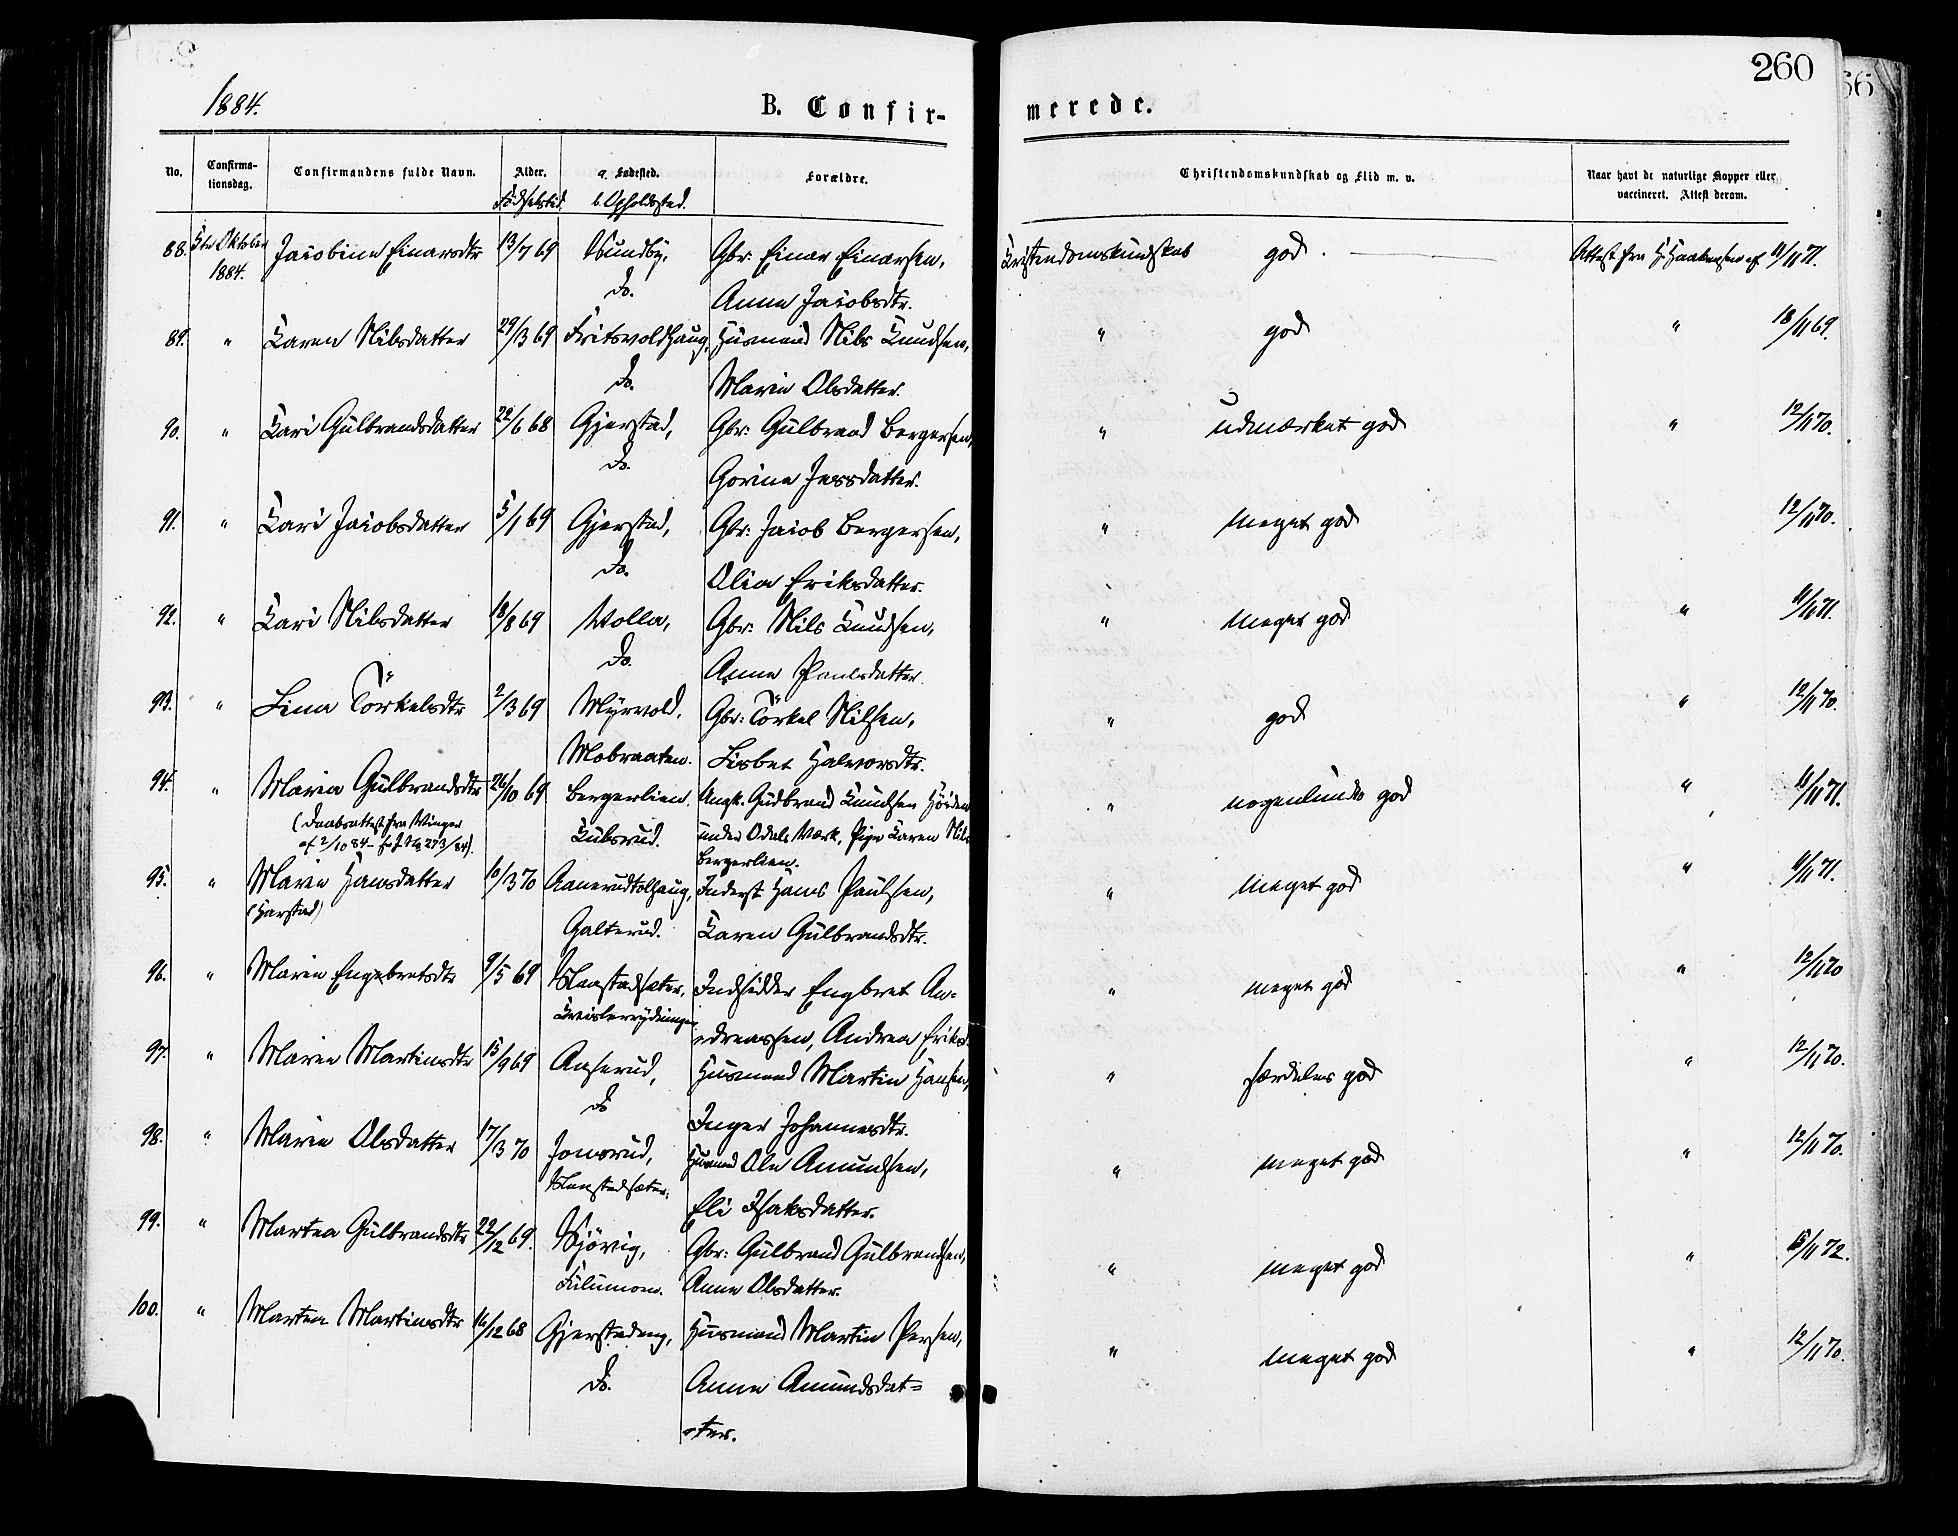 260
1884.
B. Confir-
merede.
No.
Confirma-
tionsdag.
Confirmandens fulde Navn.
Alder.
Fødselstid.
a. Fødested.
b. Opholdssted.
Forældre.
Christendomskundskab og Flid m. v.
Naar havt de naturlige Kopper eller
vaccineret. Attest derom.
88. 5te Oktober Jacobine Einarsdtr 13/7 69 Sundby, Gbr: Einar Einarsen, Kristendomskundskab god. Attest fra 11/11 71.
1884. Do. Anne Jacobsdtr.
89. " Karen Nilsdatter 29/3 69 Fritsvoldhaug, Husmand Nils Knudsen, " god " 18/11 69.
Do. Marie Olsdatter.
90. " Kari Gulbrandsdatter 22/6 68 Gjerstad, Gbr: Gulbrand Bergersen, " udmærket god " 12/11 70.
Do. Gorine Jensdatter.
91. " Kari Jacobsdatter 5/1 69 Gjerstad, Gbr: Jacob Bergersen, " meget god 12/11 70.
Do. Olia Eriksdatter.
92. " Kari Nilsdatter 18/8 69 Volla, Gbr: Nils Knudsen, " meget god " 11/11 71.
Do. Anne Paulsdatter
93. " Lina Törkelsdtr 2/3 69 Myrvold, Gbr: Törkel Nilsen, " god " 12/11 70.
Mobraaten. Lisbet Halvorsdtr.
94. " Maria Gulbrandsdtr 26/10 69 Bergerlien. Ungk. Gudbrand Knudsen " nogenlunde god " 11/11 71.
(Daabsattest fra Vinger Kulsrud. under Odals Værk, Pige Karen Nils
af 2/10 84 - 273/84). Bergerlien.
95. " Maria Hansdatter 10/3 70 Aanerudtolhaug, Inderst Hans Paulsen, " meget god " 11/11 71.
(Harstad) Galterud. Karen Gulbrandsdtr.
96. " Maria Engebretsdtr 9/5 69 Slaastadsæter, Indsidder Engbret An= " meget god " 12/11 70
edreassen, Andrea Eriksd.
97. " Maria Martinsdtr 15/9 69 Anserud, Husmand Martin Hansen, " særdeles god " 12/11 70.
Do Inger Johannesdtr.
98. " Marie Olsdatter 17/3 70 Jonsrud, Husmand Ole Amundsen, " meget god " 12/11 70.
Slaastadsæter. Eli Isaksdatter.
99. " Martea Gulbrandsdtr 22/12 69. Sjövig, Gbr: Gulbrand Gulbrandsen, " meget god " /11 72.
Fulumoen. Anne Olsdatter.
100. " Martea Martinsdtr 16/12 68 Gjerstadeng, Husmand Martin Persen, " meget god " 12/11 70.
Do. Anne Amundsdat=
=ter.